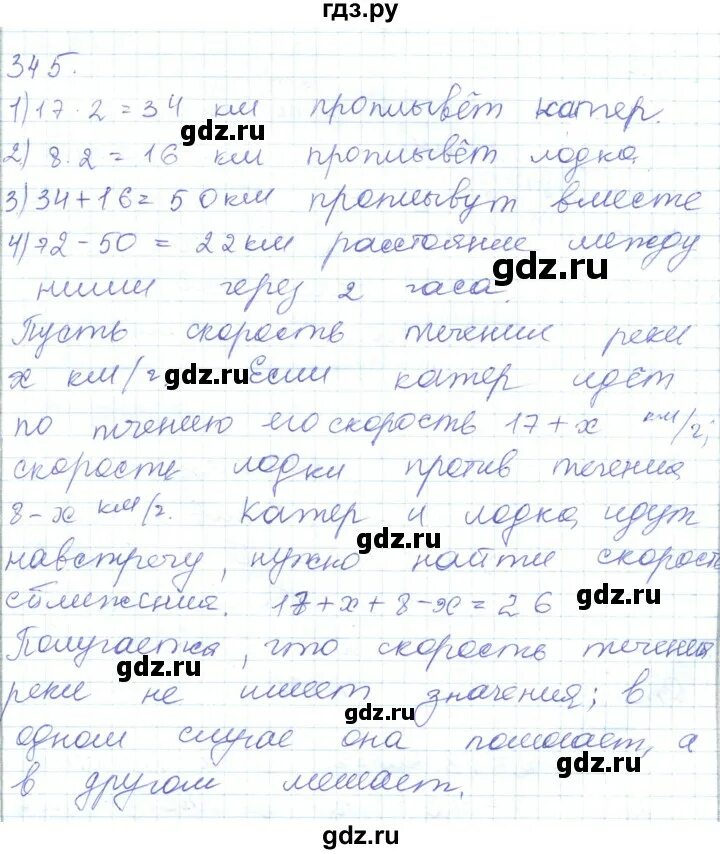 гдз.ру
345.
1) 17 · 2 = 34 км проплывёт катер.
gdz.ru
2) 8 · 2 = 16 км проплывёт лодка
3) 34 + 16 = 50 км проплывут вместе
4) 72 - 50 = 22 км расстояние между
gdz.ru
ними через 2 часа.
Пусть скорость течения реки
x км/ч gdz.ru Если катер идёт
по течению его скорость 17 + x км/ч;
скорость лодки против течения
8 - x км/ч. Катер и лодка идут
gdz.ru
навстречу, нужно найти скорост
сближения. 17 + x + 8 - x = 26 gdz.ru
Получается, что скорость течения
gdz.ru
реки не имеет значения; в
gdz.ru
одном случае она помогает, а
gdz.ru
в другом мешает.
gdz.ru